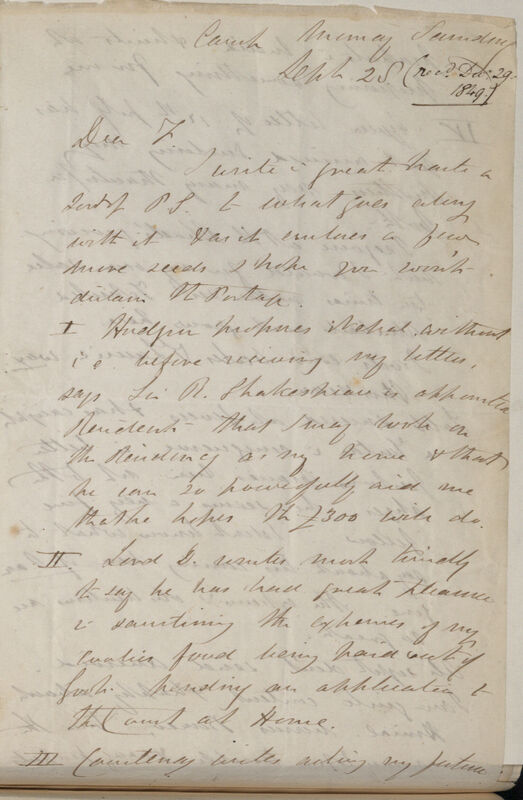 Camp Momay Samdong
Sept 28 (recd. Dc: 29. 1849.)
Dear F
I write in great haste a
sort of P.S. to what goes along
with it & as it encloses a few
more seeds I hope you won't
disdain the Postage.
I Hodgson proposes Nepal, without
i.e. before receiving my letters,
says Sir R. Shakespear is appointed
Resident— that I may look on
the Residency as my home & that
he can so powerfully aid me
that he hopes the £300 will do.
II. Lord D. writes most kindly
to say he has had great pleasure
in sanctioning the expenses of my
coolies food being paid out of
Govt. pending an application to
the Court at Home.
III Courtenay writes asking my future